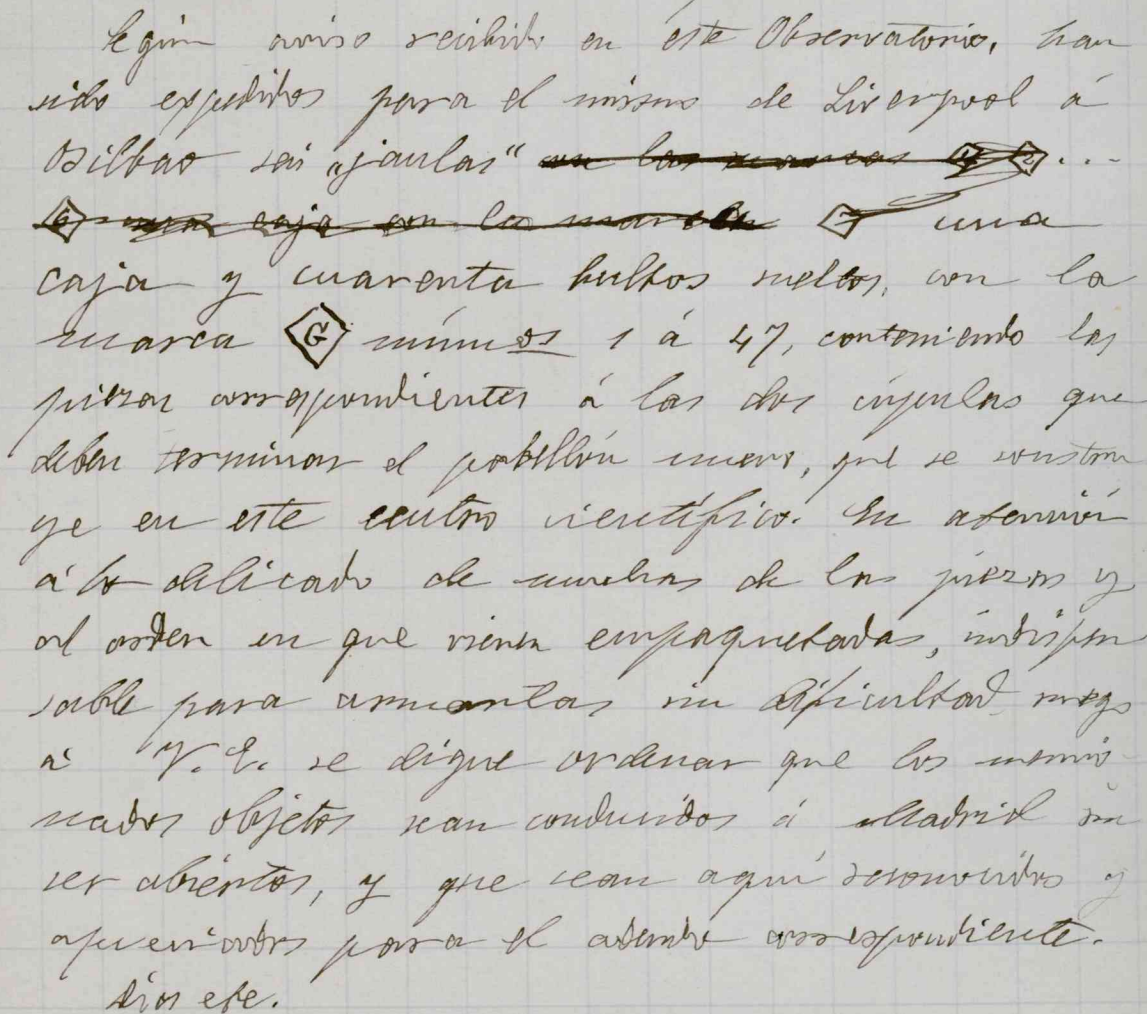 Según aviso recibido en éste Observatorio, han
sido expedidos para el mismo de Liverpool á
Bilbao seis "jaulas" en las marcas 1 2 ...
6 una caja con la marca 7 una
caja y cuarenta bultos sueltos, con la
marca G númos 1 á 47, conteniendo las
piezas correspondientes á las dos cúpulas que
deben terminar el pabellón nuevo, que se constru
ye en este centro científico. En atención
á lo delicado de muchas de las piezas y
al orden en que vienen empaquetadas, indispen
sable para armarlas sin dificultad, ruego
á V. E. se digne ordenar que los mencio-
nados objetos sean conducidos á Madrid sin
ser abiertos, y que sean aquí reconocidos y
apreciados para el adeudo correspondiente.
Dios etc.